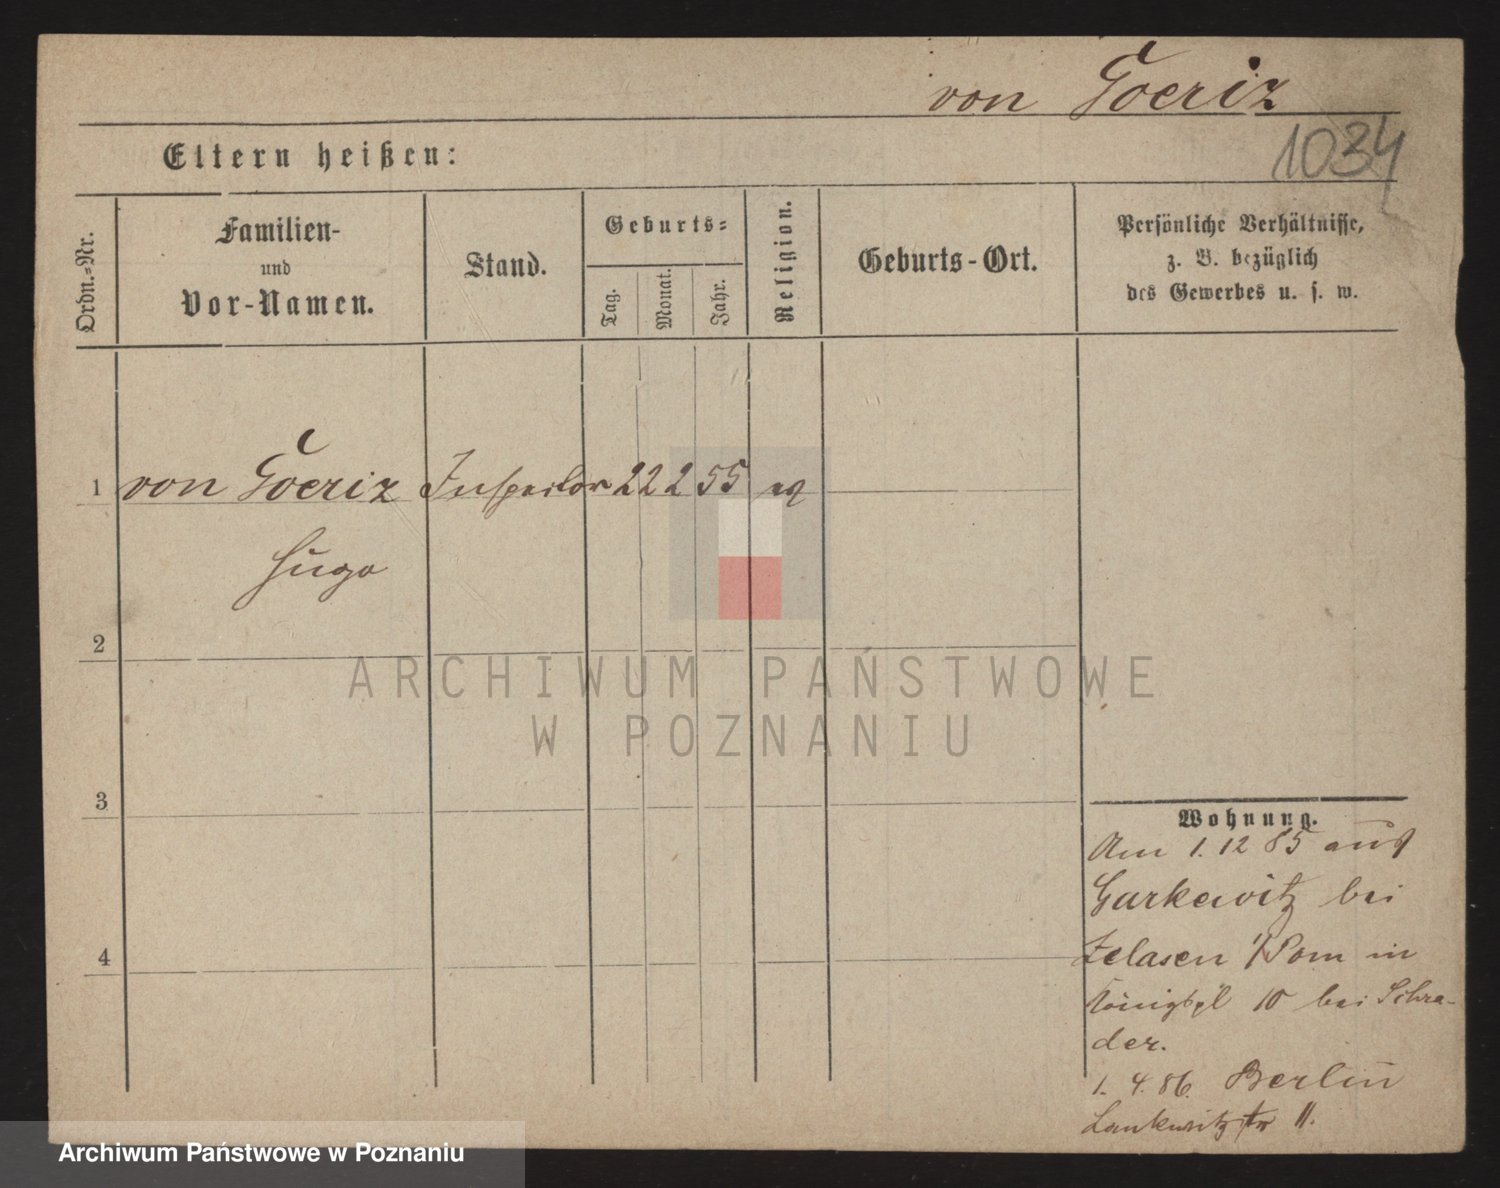 von Goeriz
1034
Eltern heißen:
Ordn.-Nr.
Familien-
und
Vor-Namen.
Stand.
Geburts-
Tag.
Monat.
Jahr.
Religion.
Geburts-Ort.
Persönliche Verhältnisse,
z. B. bezüglich
des Gewerbes u. s. w.
1 von Goeriz Inspector 22 2 55
Hugo
2
3
4
Wohnung.
Am 1. 12 85 aus
Garkewitz bei
Zelasen i/Pom in
Königspl 10 bei Schra-
der.
1. 4. 86. Berlin
Lankwitzstr 11.
ARCHIWUM PAŃSTWOWE
W POZNANIU
Archiwum Państwowe w Poznaniu